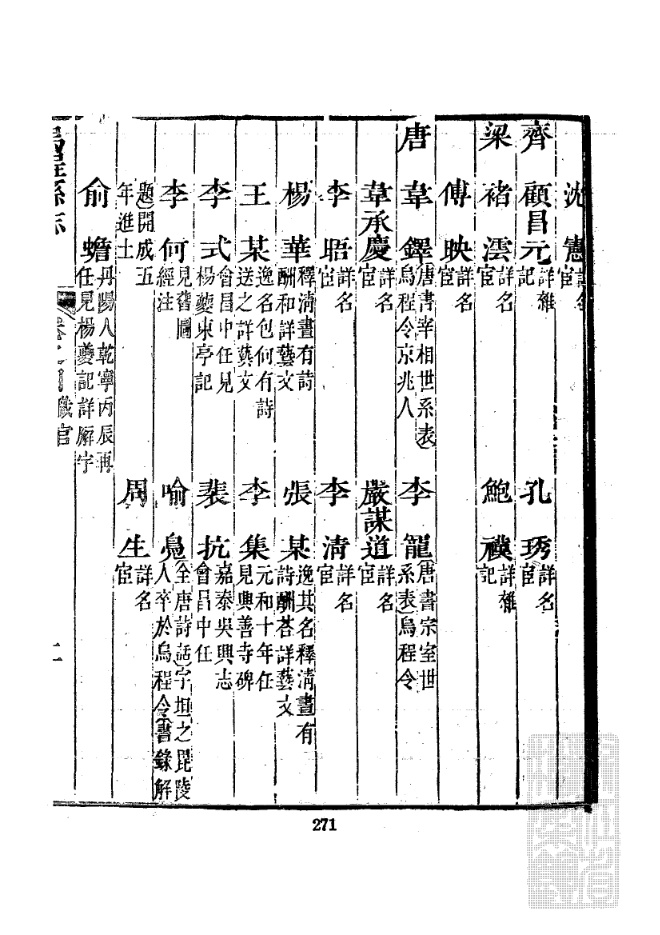 沈憲 詳名宦
齊 顧昌元 詳雜記 孔琇 詳名宦
梁 褚雲 詳名宦 鮑襆 詳雜記
傅映 詳名宦
唐 韋鐸 唐書宰相世系表烏程令京兆人 李龍 唐書宗室世系表烏程令
韋承慶 詳名宦 嚴謀道 詳名宦
李晤 詳名宦 李清 詳名宦
楊華 釋清晝有詩酬和詳藝文 張某 逸其名釋清晝有詩酬荅詳藝文
王某 逸名包何有詩送之詳藝文 李集 元和十年任見興善寺碑
李式 會昌中任見楊夔東亭記 裴抗 嘉泰吳興志會昌中任
李何 見舊圖經注 喻鳧 全唐詩話字坦之毘陵人卒於烏程令書錄解
題開成五年進士 周生 詳名宦
俞蟾 丹陽人乾寧丙辰再任見楊夔記詳廨宇
烏程縣志 卷 職官
271